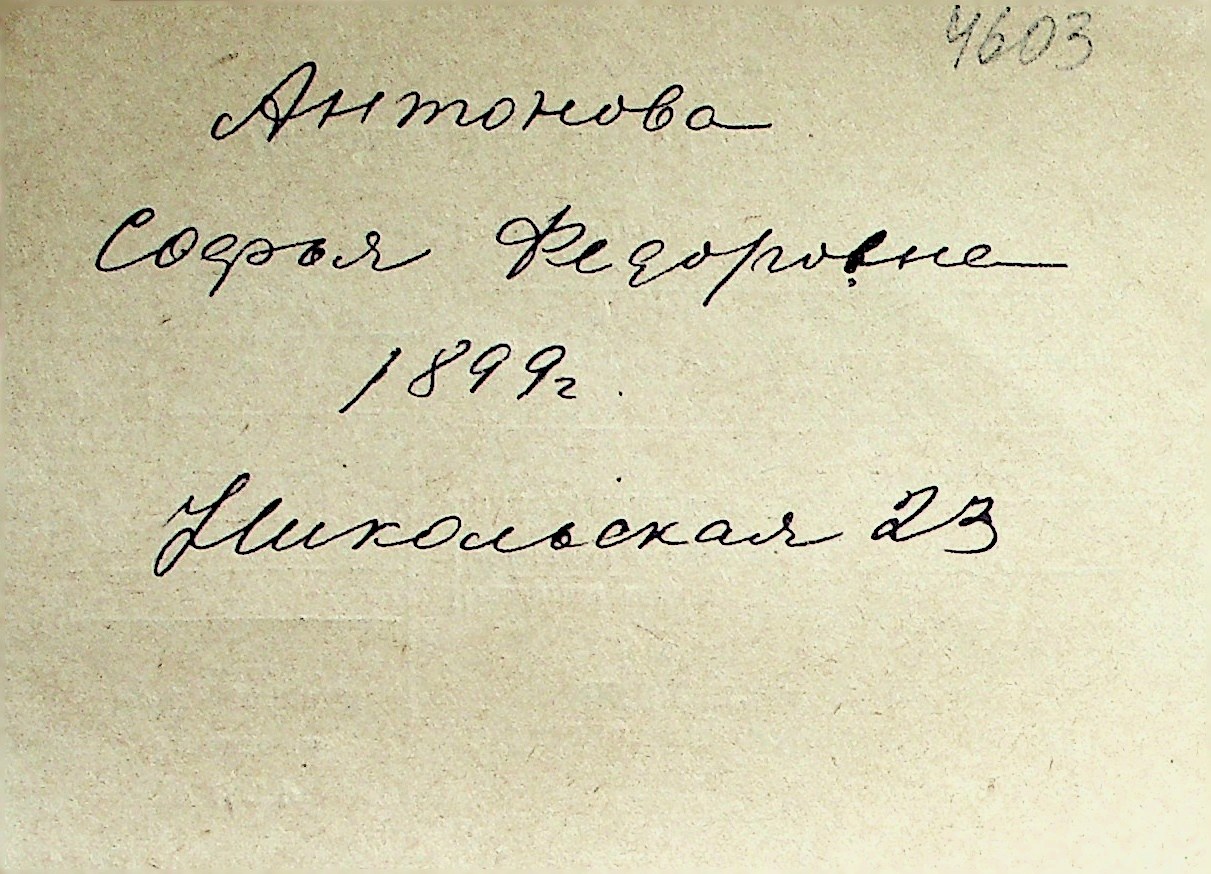 4603
Антонова
Софья Федоровна
1899г.
Никольская 23